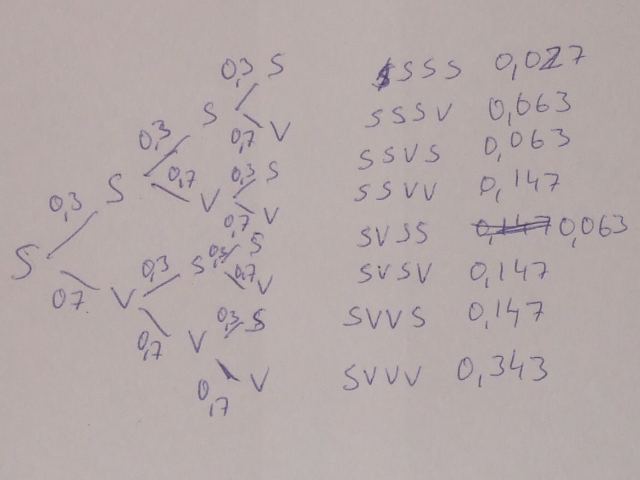 0,3 S
S S S S 0,027
S
0,3
0,7 V
S S S V 0,063
S
0,7
0,3 S
S S V S 0,063
0,3
V
0,7 V
S S V V 0,147
S
S V S S 0,147 0,063
0,3 S
0,3 S
0,7
07 V
V
S V S V 0,147
0,7 V
0,3 S
S V V S 0,147
0,7 V
S V V V 0,343